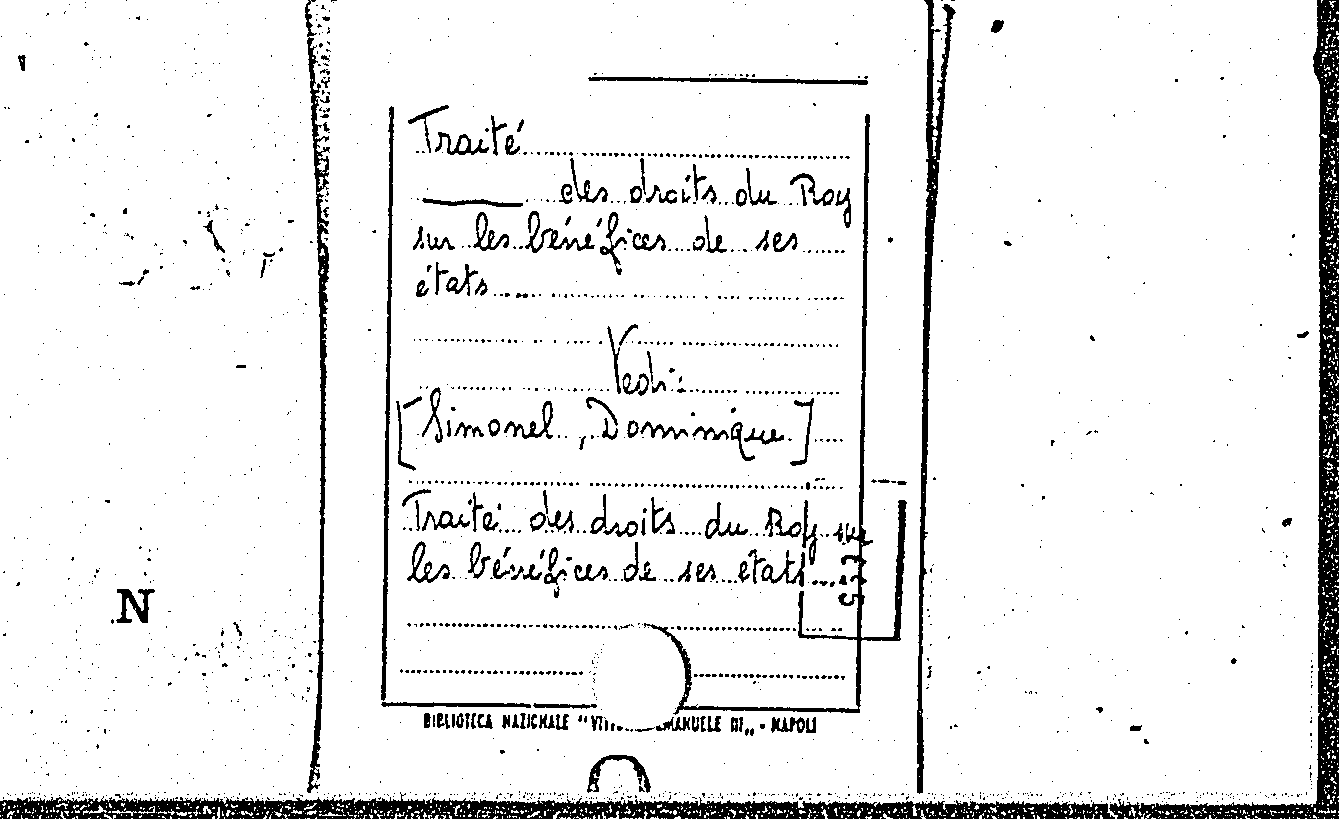 Traité
des droits du Roy
sur les bénéfices de ses
états
Vedi:
[Simonel, Dominique]
Traité des droits du Roy sur
les bénéfices de ses états
N
BIBLIOTECA NAZIONALE "VITT EMANUELE III„ - NAPOLI